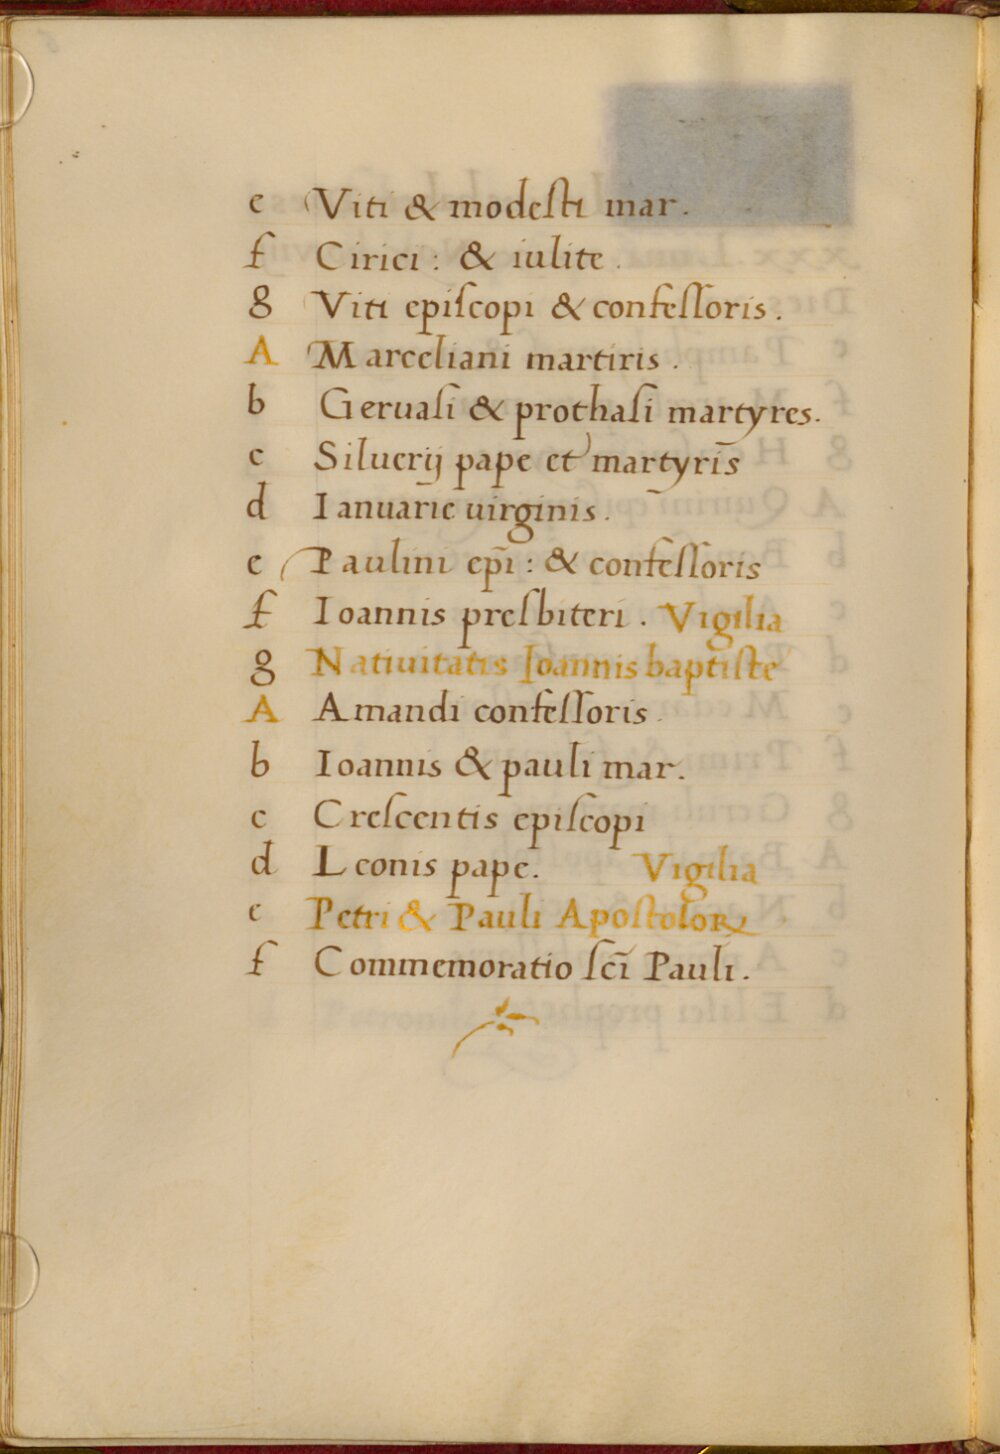 e Viti & modesti mar.
f Cirici : & iulite .
g Viti episcopi & confessoris .
A Marceliani martiris .
b Geruasi & prothasi martyres.
c Siluerij pape et martyrīs
d Ianuarie uirginis .
e Paulini epī : & confessoris
f Ioannis presbiteri . Vigilia
g Natiuitatis Ioannis baptiste
A Amandi confessoris .
b Ioannis & pauli mar.
c Crescentis episcopi
d Leonis pape. Vigilia
e Petri & Pauli Apostoloꝝ
f Commemoratio scī Pauli .